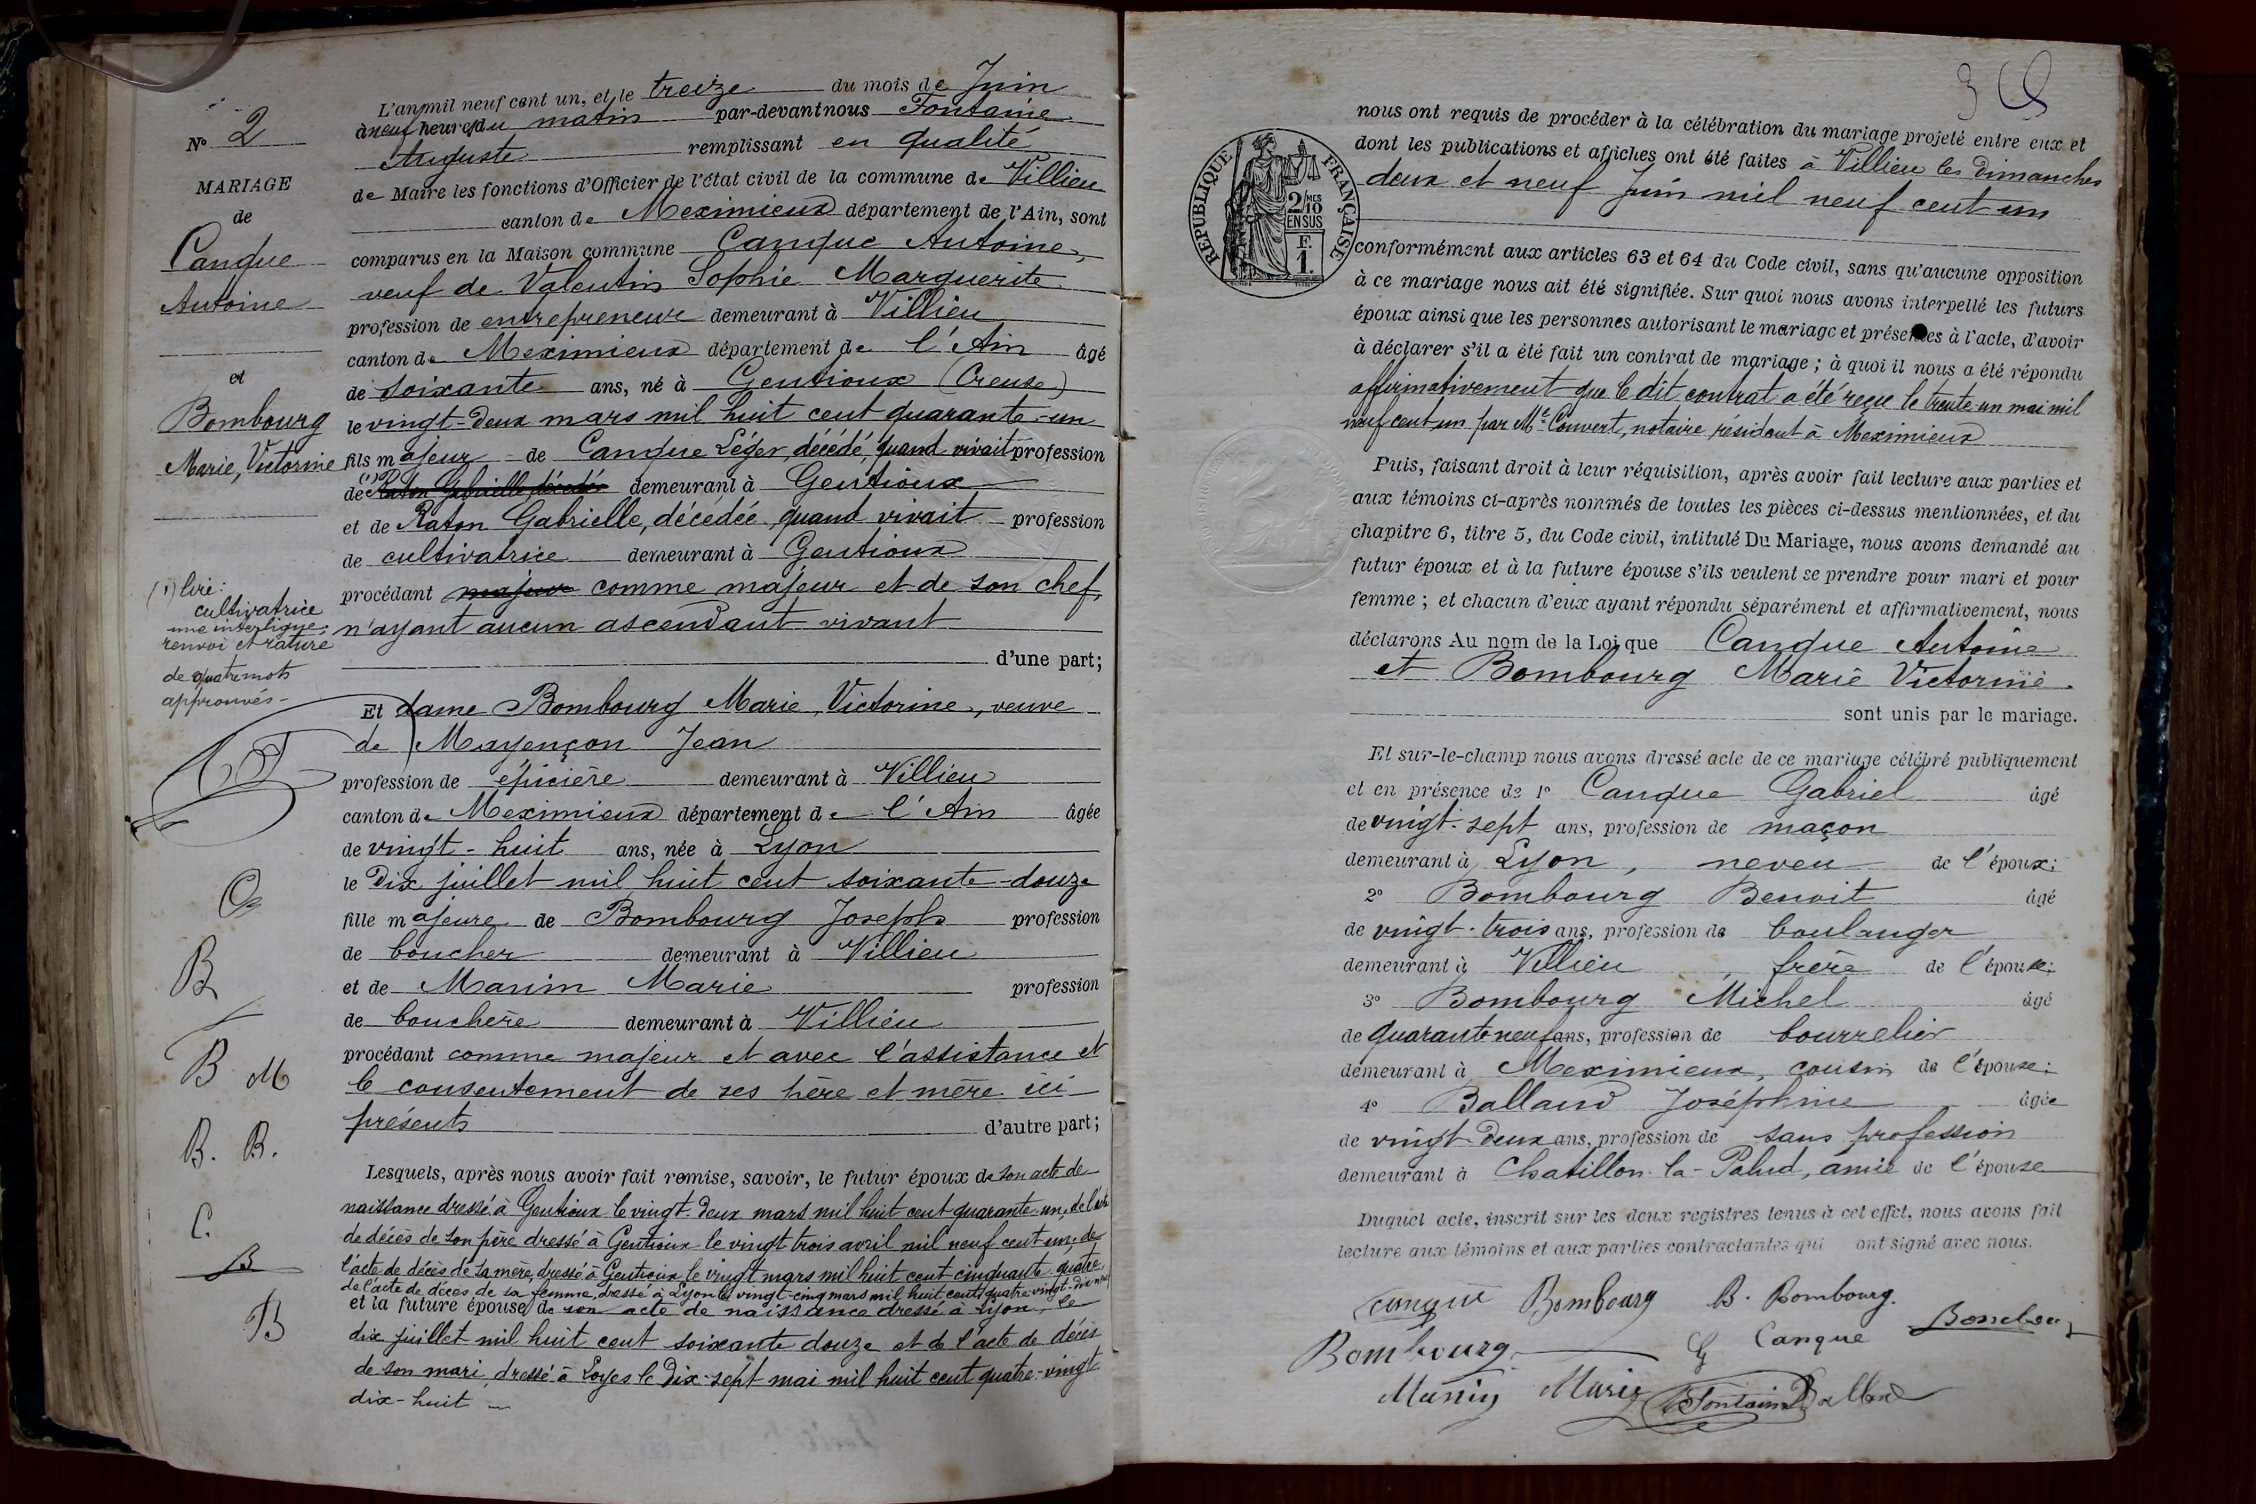 No 2
MARIAGE
de
Canque
Antoine
et
Bombourg
Marie, Victorine
(1) lire:
cultivatrice
une interligne,
renvoi et rature
de quatre mots
approuvés -
B
B M
B. B.
C.
B
B
L'an mil neuf cent un, et le treize du mois de Juin
à neuf heures du matin par-devant nous Fontaine
Auguste remplissant en qualité
de Maire les fonctions d'Officier de l'état civil de la commune de Villieu
canton de Meximieux département de l'Ain, sont
comparus en la Maison commune Canque Antoine,
veuf de Valentin Sophie Marguerite
profession de entrepreneur demeurant à Villieu
canton de Meximieux département de l'Ain âgé
de soixante ans, né à Gentioux (Creuse)
le vingt-deux mars mil huit cent quarante-un
fils majeur de Canque Léger, décédé, quand vivait profession
de (1) Raton Gabrielle, décédée demeurant à Gentioux
et de Raton Gabrielle, décédée, quand vivait profession
de cultivatrice demeurant à Gentioux
procédant majeur comme majeur et de son chef,
n'ayant aucun ascendant vivant
d'une part;
Et dame Bombourg Marie, Victorine, veuve
de Mayençon Jean
profession de épicière demeurant à Villieu
canton de Meximieux département de l'Ain âgée
de vingt-huit ans, née à Lyon
le dix juillet mil huit cent soixante-douze
fille majeure de Bombourg Joseph profession
de boucher demeurant à Villieu
et de Manin Marie profession
de bouchère demeurant à Villieu
procédant comme majeur et avec l'assistance et
le consentement de ses père et mère ici
présents d'autre part;
Lesquels, après nous avoir fait remise, savoir, le futur époux de son acte de
naissance dressé à Gentioux le vingt-deux mars mil huit cent quarante-un, de l'acte
de décès de son père dressé à Gentioux le vingt trois avril mil neuf cent un, de
l'acte de décès de sa mère, dressé à Gentioux le vingt mars mil huit cent cinquante quatre,
de l'acte de décès de sa femme, dressé à Lyon le vingt-cinq mars mil huit cent quatre-vingt-dix-neuf
et la future épouse de son acte de naissance dressé à Lyon, le
dix juillet mil huit cent soixante douze et de l'acte de décès
de son mari, dressé à Loyes le dix-sept mai mil huit cent quatre-vingt
dix-huit
3
RÉPUBLIQUE FRANÇAISE
2/10 MES
EN SUS
F.
1.
nous ont requis de procéder à la célébration du mariage projeté entre eux et
dont les publications et affiches ont été faites à Villieu les dimanches
deux et neuf Juin mil neuf cent un
conformément aux articles 63 et 64 du Code civil, sans qu'aucune opposition
à ce mariage nous ait été signifiée. Sur quoi nous avons interpellé les futurs
époux ainsi que les personnes autorisant le mariage et présentes à l'acte, d'avoir
à déclarer s'il a été fait un contrat de mariage; à quoi il nous a été répondu
affirmativement que le dit contrat a été reçu le trente-un mai mil
neuf cent un par Me Convert, notaire résidant à Meximieux
Puis, faisant droit à leur réquisition, après avoir fait lecture aux parties et
aux témoins ci-après nommés de toutes les pièces ci-dessus mentionnées, et du
chapitre 6, titre 5, du Code civil, intitulé Du Mariage, nous avons demandé au
futur époux et à la future épouse s'ils veulent se prendre pour mari et pour
femme; et chacun d'eux ayant répondu séparément et affirmativement, nous
déclarons Au nom de la Loi que Canque Antoine
et Bombourg Marie Victorine.
sont unis par le mariage.
Et sur-le-champ nous avons dressé acte de ce mariage célébré publiquement
et en présence de 1º Canque Gabriel âgé
de vingt-sept ans, profession de maçon
demeurant à Lyon, neveu de l'époux;
2º Bombourg Benoit âgé
de vingt-trois ans, profession de boulanger
demeurant à Villieu, frère de l'épouse;
3º Bombourg Michel âgé
de quarante neuf ans, profession de bourrelier
demeurant à Meximieux, cousin de l'épouse;
4º Balland Joséphine âgée
de vingt-deux ans, profession de sans profession
demeurant à Chatillon-la-Palud, amie de l'épouse
Duquel acte, inscrit sur les deux registres tenus à cet effet, nous avons fait
lecture aux témoins et aux parties contractantes qui ont signé avec nous.
Canque Bombourg B. Bombourg.
Bombourg
Bombourg G Canque
Manin Marie Fontaine Balland